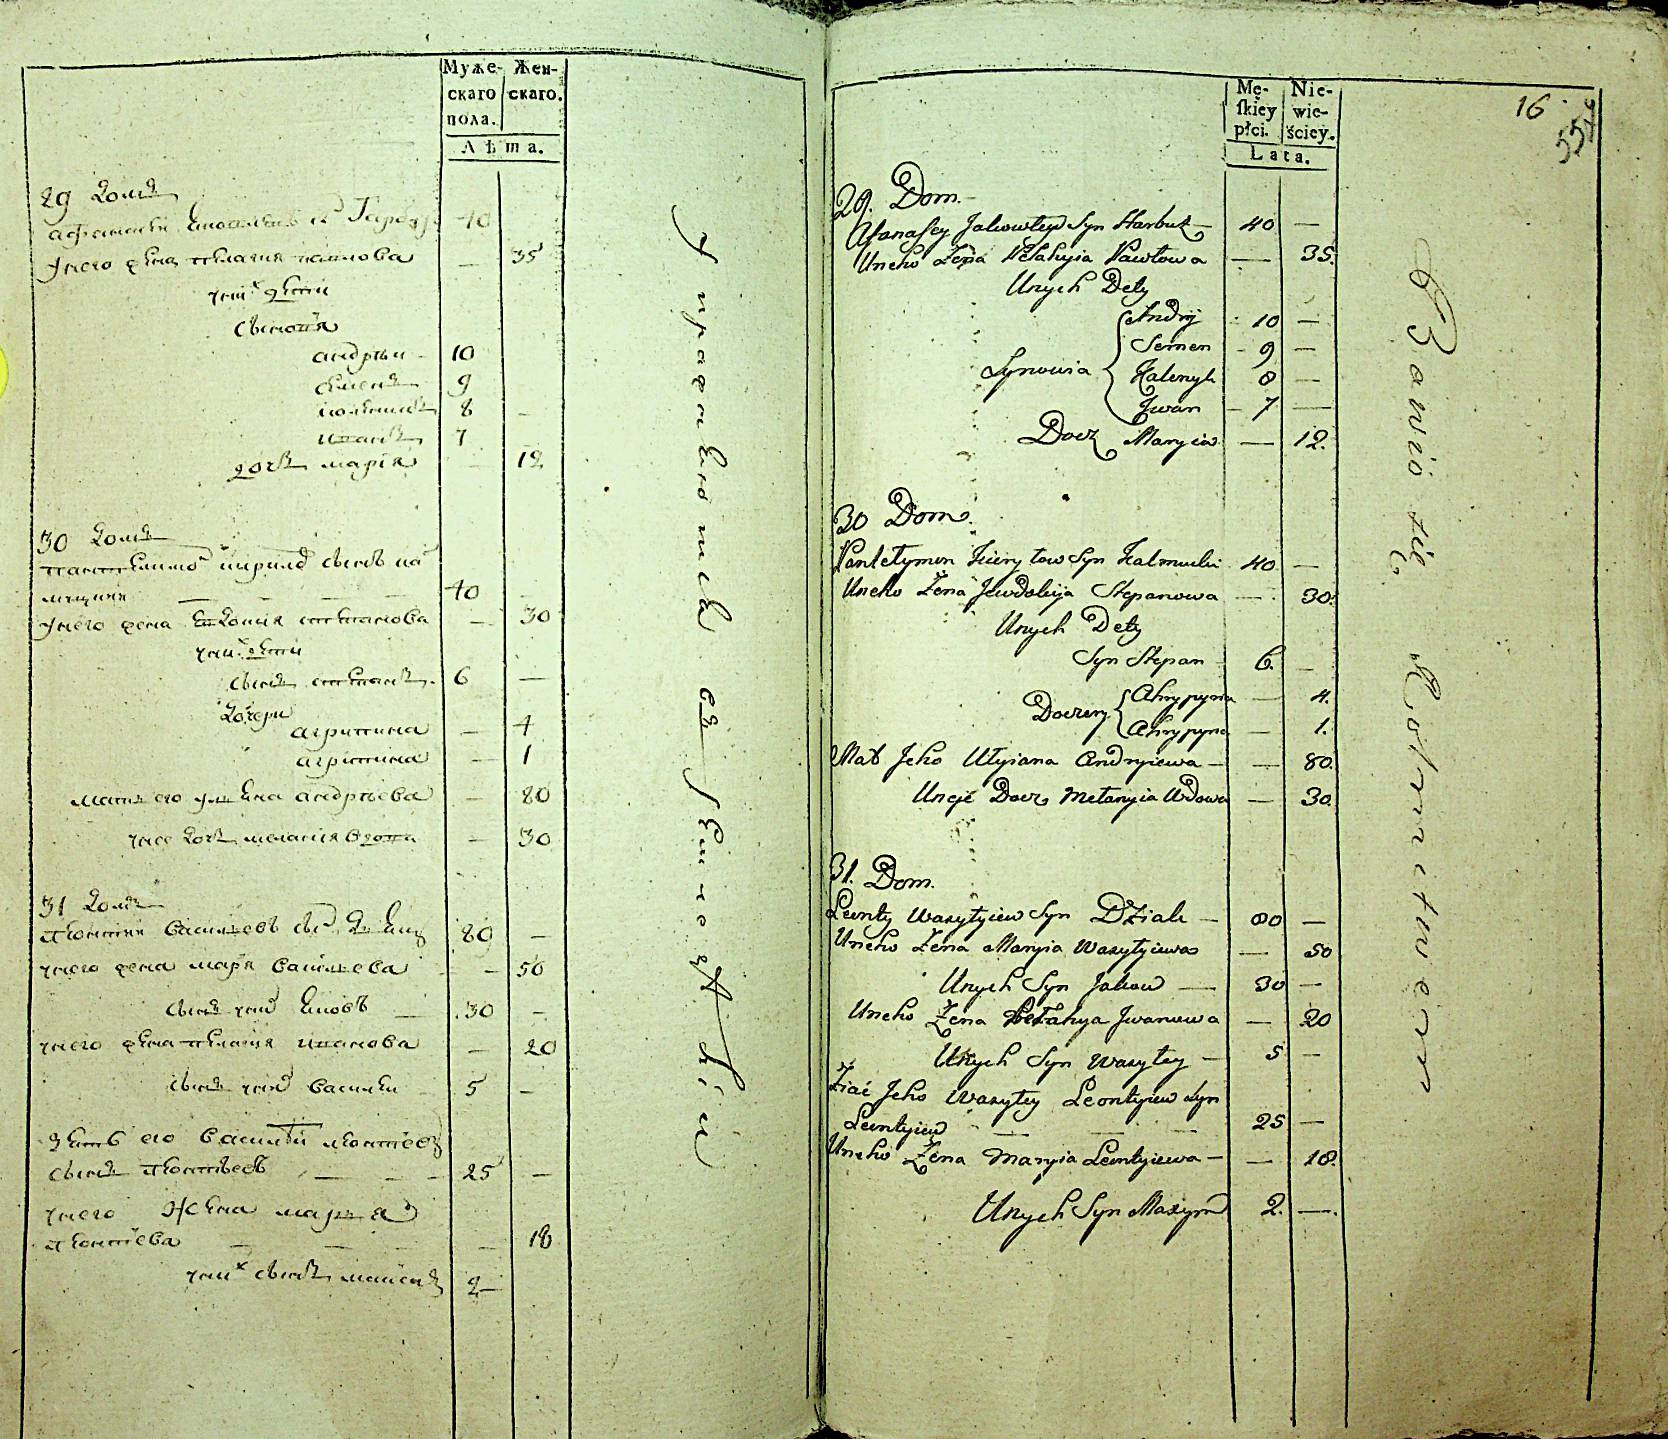 Муже-
скаго
пола.
Жен-
скаго.
Лѣта.
29 Домъ
40
У него жена Пелагия Павлова — 35
у них дѣти
сыновья
андрѣй 10
семенъ 9
8 —
иванъ 7
дочь мария — 12
30 Домъ
40 —
У него жена Евдокия степанова — 30
у них дѣти
сынъ степанъ 6 —
Дочери
агрипина — 4
агрипина — 1
мать его улияна андрѣева — 80
у нее дочь мелания вдова — 30
31 Домъ
Леонтий васильевъ сынъ 80 —
у него жена марья васильева — 50
сынъ у них Яковъ — 30 —
у него жена пелагия иванова — 20
сынъ у них василий 5 —
зять его василий леонтиевъ
сынъ леонтьевъ — — — 25 —
у него жена марья
леонтиева — — — 18
у них сынъ максимъ 2 —
Упражняются въ земледѣлии
Mę-
skiey
płci.
Nie-
wie-
ściey.
Lata.
16
554
29. Dom.
Afanasey Jakowlew Syn Harbuz — 40 —
Uneho Żena Pełahyia Pawłowa — 35.
Unych Dety
Andry 10 —
Semen 9 —
Synowia
Kalenyk 8 —
Jwan 7 —
Docz Maryia — 12.
30 Dom.
Pantełymon Kiryłow Syn Kałmucki 40 —
Uneho Żena Jewdokija Stepanowa — 30.
Unych Dety
Syn Stepan 6. —
Doczery
Ahrypyna — 4.
Ahrypyna — 1.
Mat Jeho Ulyiana Andryiewa — — 80.
Uneje Docz Mełanyia Wdowa — 30.
31. Dom.
Leonty Wasylyiew Syn Dziak — 80 —
Uneho Żena Maryia Wasylyiewa — 50
Unych Syn Jakow — 30 —
Uneho Żena Pełahya Jwanowa — 20
Unych Syn Wasyley — 5 —
Ziać Jeho Wasyley Leontyiew Syn
Leontyiew — — — 25 —
Uneho Żena Maryia Leontyiewa — — 18.
Unych Syn Maxym 2. —.
Bawio się Rolnictwem